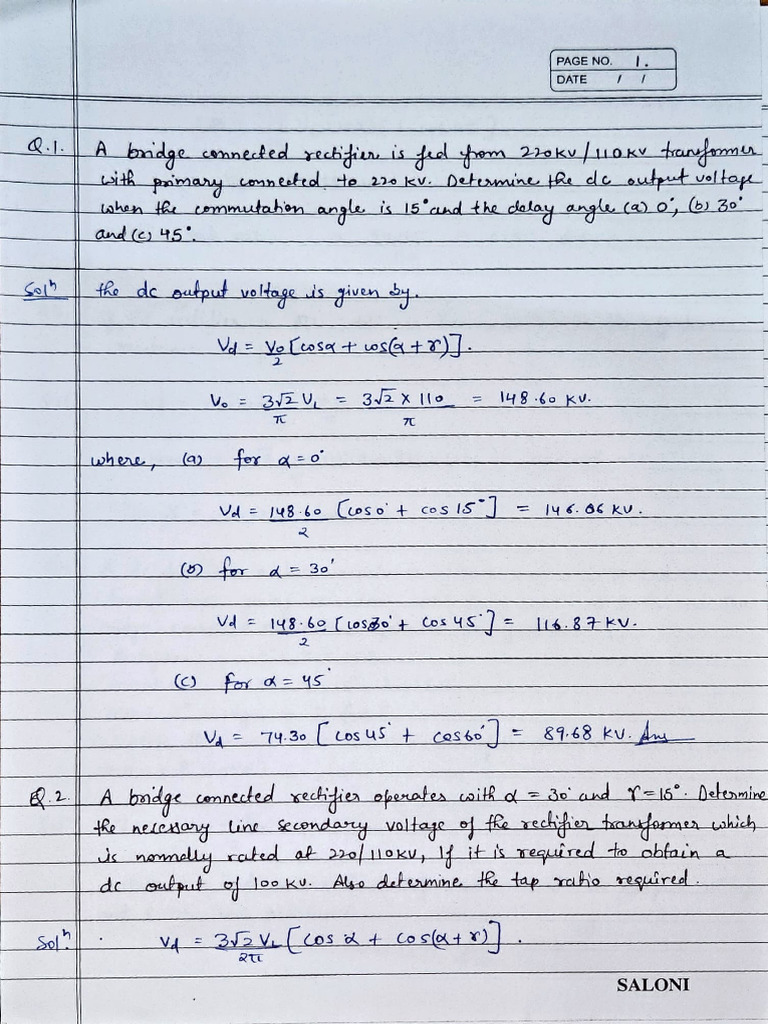 PAGE NO. 1.
DATE / /
Q.1. A bridge connected rectifier is fed from 220KV/110KV transformer
with primary connected to 220 KV. Determine the dc output voltage
when the commutation angle is 15° and the delay angle (a) 0°, (b) 30°
and (c) 45°.
Solⁿ the dc output voltage is given by.
Vd = V₀/2 [cosα + cos(α + γ)].
V₀ = 3√2 V_L/π = 3√2 × 110/π = 148.60 KV.
where, (a) for α = 0°
Vd = 148.60/2 [cos0° + cos 15°] = 146.06 KV.
(b) for α = 30°
Vd = 148.60/2 [cos30° + cos 45°] = 116.87 KV.
(c) for α = 45°
Vd = 74.30 [cos45° + cos60°] = 89.68 KV. Ans
Q.2. A bridge connected rectifier operates with α = 30° and γ = 15°. Determine
the necessary line secondary voltage of the rectifier transformer which
is normally rated at 220/110KV, If it is required to obtain a
dc output of 100 KV. Also determine the tap ratio required.
Solⁿ. Vd = 3√2 V_L/2π [cos α + cos(α + γ)].
SALONI